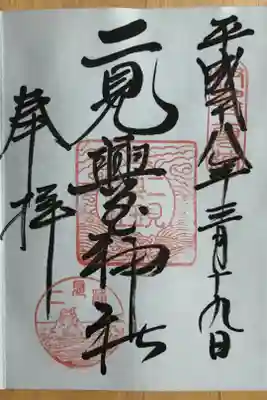 平成十八年三月十九日
二見興玉神社
奉拝